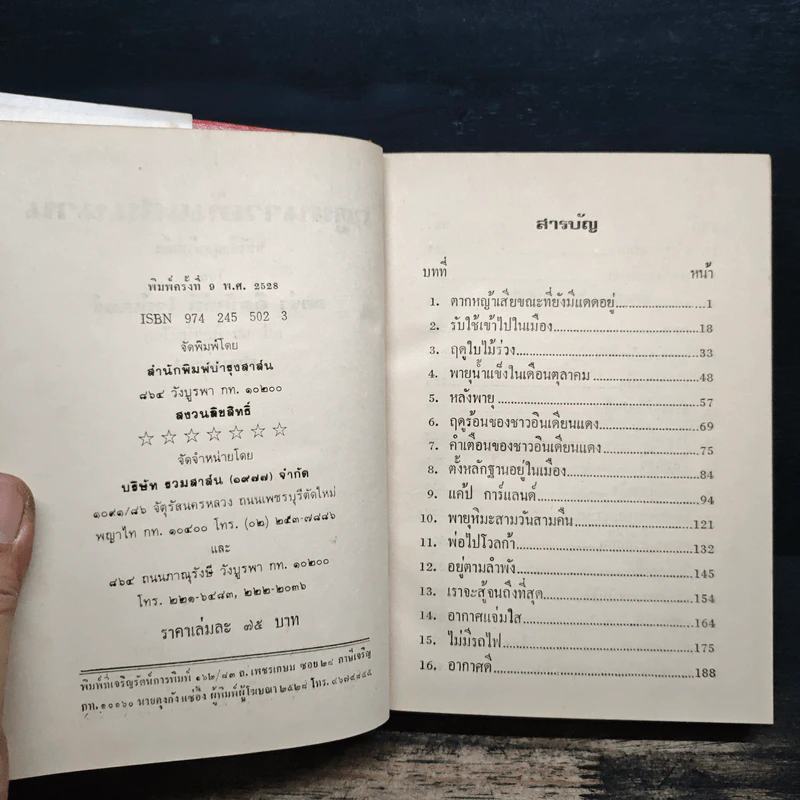 พิมพ์ครั้งที่ 9 พ.ศ. 2528
ISBN 974 245 502 3
จัดพิมพ์โดย
สำนักพิมพ์บำรุงสาส์น
๘๖๔ วังบูรพา กท. ๑๐๒๐๐
สงวนลิขสิทธิ์
☆ ☆ ☆ ☆ ☆ ☆ ☆
จัดจำหน่ายโดย
บริษัท รวมสาส์น (๑๙๗๗) จำกัด
๑๐๙๑/๘๖ จัตุรัสนครหลวง ถนนเพชรบุรีตัดใหม่
พญาไท กท. ๑๐๔๐๐ โทร. (๐๒) ๒๕๓-๗๘๘๖
และ
๘๖๔ ถนนภาณุรังษี วังบูรพา กท. ๑๐๒๐๐
โทร. ๒๒๑-๖๔๘๓, ๒๒๒-๒๐๓๖
ราคาเล่มละ ๗๕ บาท
พิมพ์ที่เจริญรัตน์การพิมพ์ ๑๖๒/๘๓ ถ. เพชรเกษม ซอย ๒๔ ภาษีเจริญ
กท. ๑๐๑๖๐ นายคุงกัง แซ่อึ้ง ผู้พิมพ์ผู้โฆษณา ๒๕๒๘ โทร.
สารบัญ
บทที่ หน้า
1. ตากหญ้าเสียขณะที่ยังมีแดดอยู่ 1
2. รับใช้เข้าไปในเมือง 18
3. ฤดูใบไม้ร่วง 33
4. พายุน้ำแข็งในเดือนตุลาคม 48
5. หลังพายุ 57
6. ฤดูร้อนของชาวอินเดียนแดง 69
7. คำเตือนของชาวอินเดียนแดง 75
8. ตั้งหลักฐานอยู่ในเมือง 84
9. แค้ป การ์แลนด์ 94
10. พายุหิมะสามวันสามคืน 121
11. พ่อไปโวลก้า 132
12. อยู่ตามลำพัง 145
13. เราจะสู้จนถึงที่สุด 154
14. อากาศแจ่มใส 164
15. ไม่มีรถไฟ 175
16. อากาศดี 188